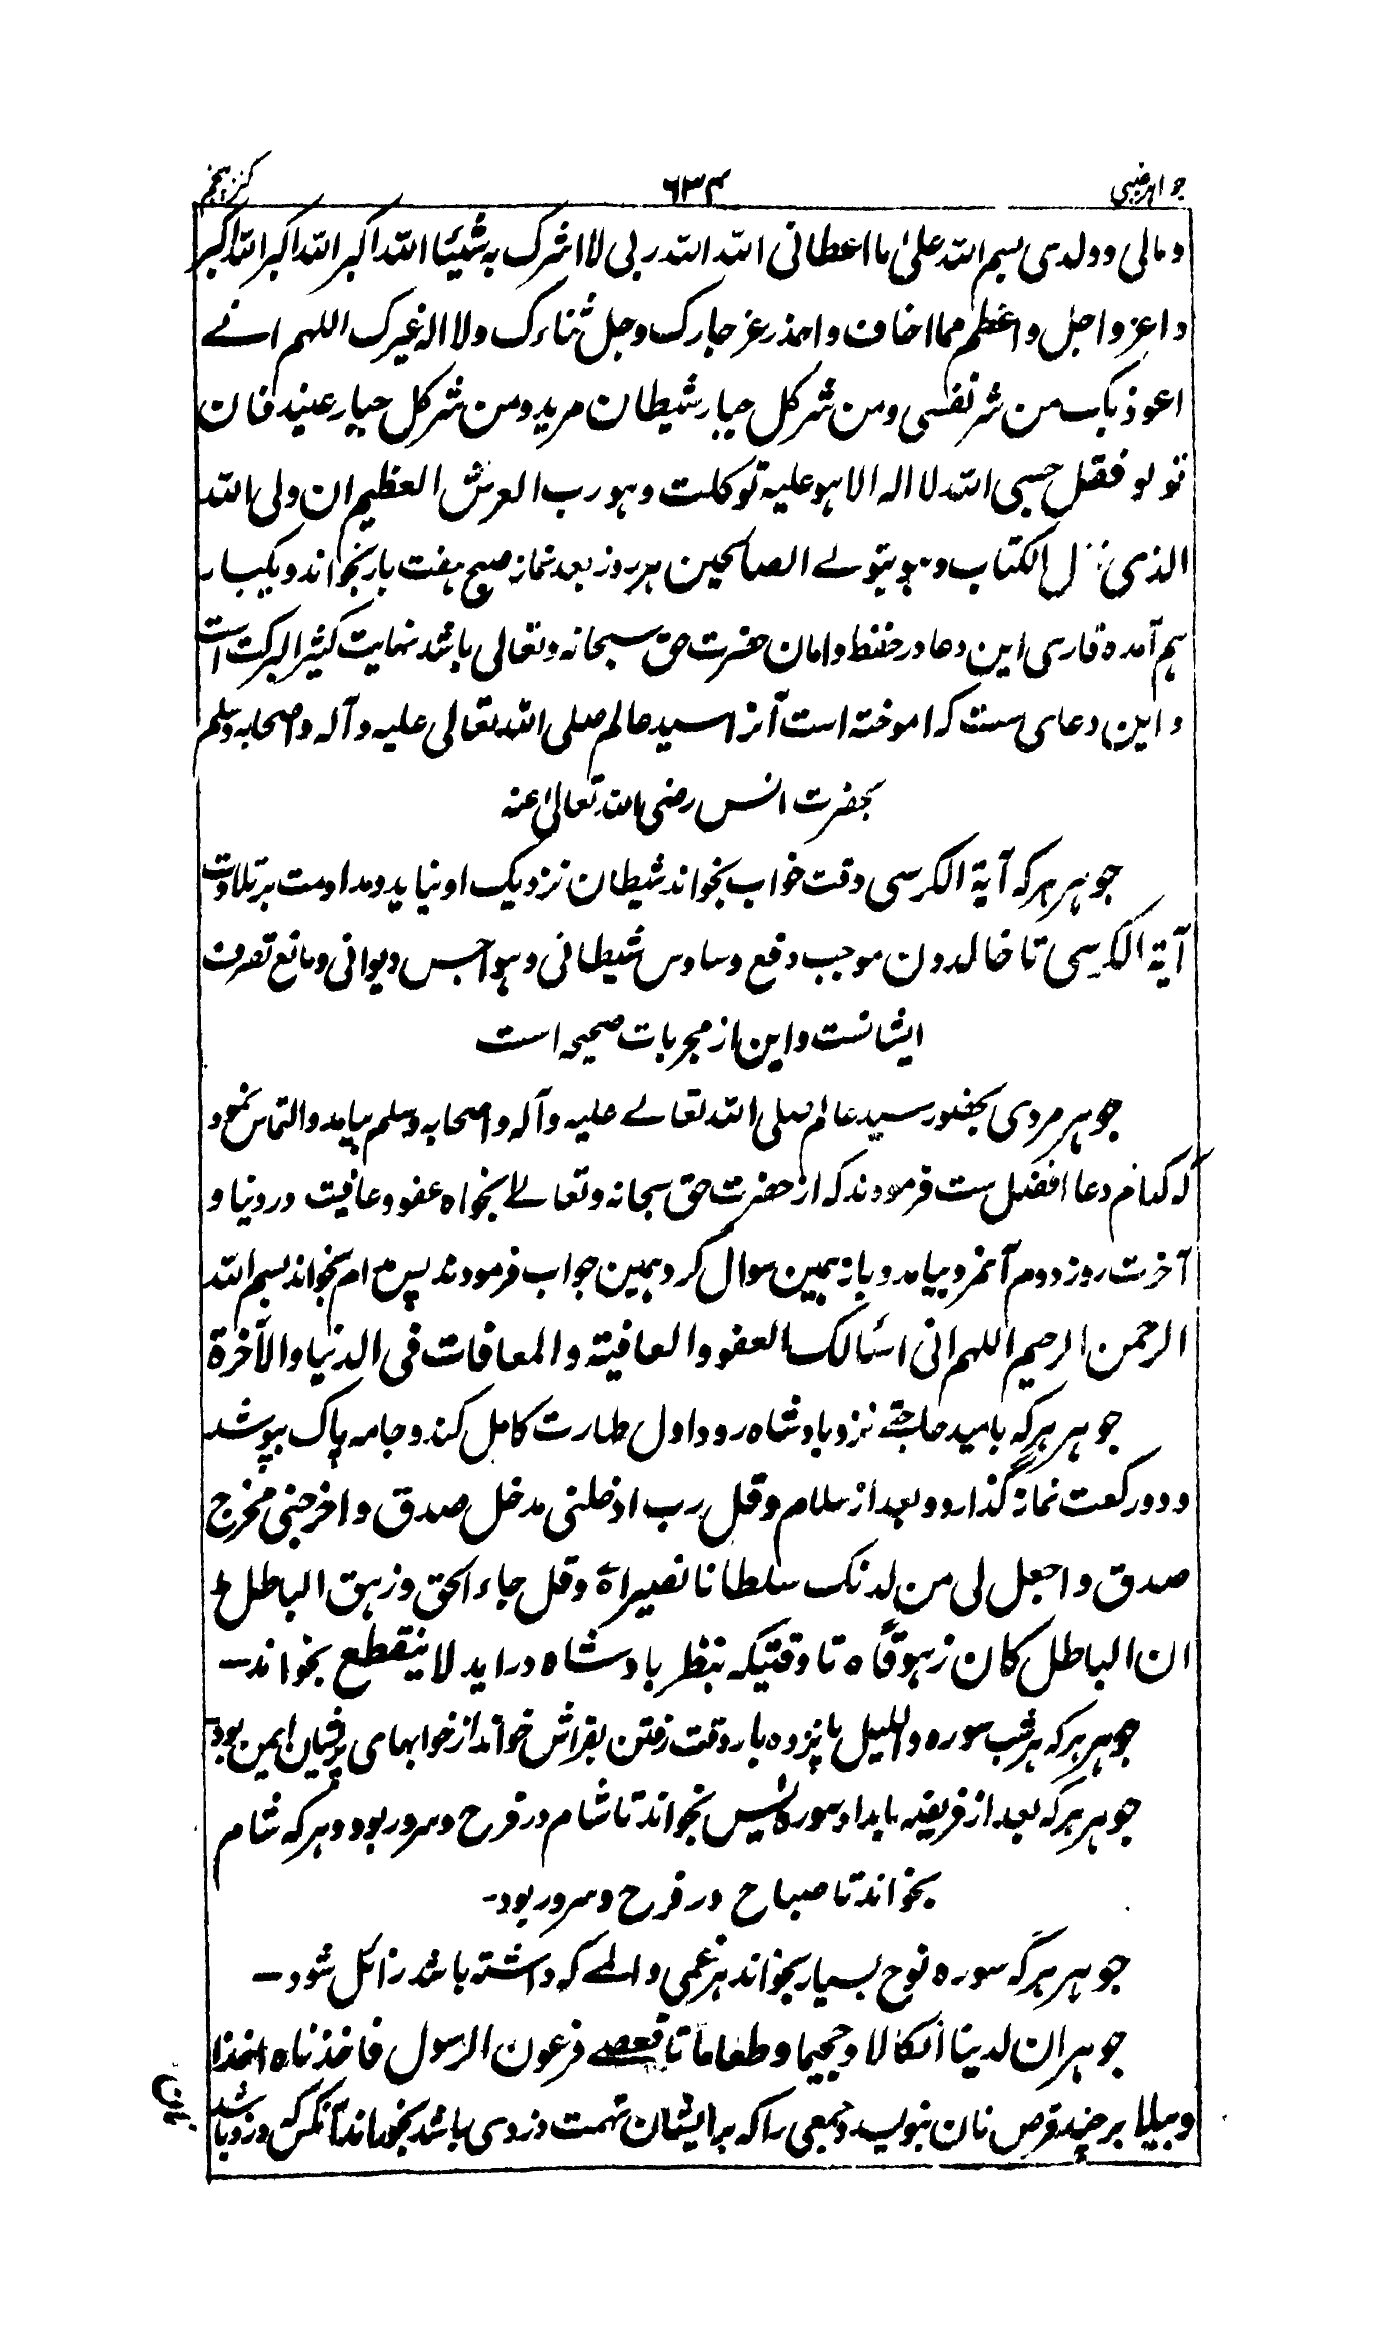 جواہر غیبی ۶۳۴ کنز پنجم
و مالی و ولدی بسم اللہ علیٰ ما اعطانی اللہ اللہ ربی لا اشرک بہ شیئا اللہ اکبر اللہ اکبر اللہ اکبر
و اعز و اجل و اعظم مما اخاف و احذر عز جارک و جل ثناءک ولا الہ غیرک اللہم انے
اعوذ بک من شر نفسی و من شر کل جبار شیطان مرید و من شر کل جبار عنید فان
تولو فقل حسبی اللہ لا الہ الا ہو علیہ توکلت و ہو رب العرش العظیم ان ولی اللہ
الذی نزل الکتاب و ہو یتولے الصالحین ہر روز بعد نماز صبح ہفت بار بخواند و یکبار
ہم آمدہ قاری این دعا در حفظ و امان حضرت حق سبحانہ و تعالی باشد نہایت کثیر البرکت است
و این دعای ست کہ اموختہ است آنرا سید عالم صلی اللہ تعالی علیہ و آلہ و اصحابہ وسلم
بحضرت انس رضی اللہ تعالیٰ عنہ
جوہر ہر کہ آیۃ الکرسی وقت خواب بخواند شیطان نزدیک او نیاید و مداومت بر تلاوت
آیۃ الکرسی تا خالدون موجب دفع وساوس شیطانی و ہواجس دیوانی و مانع تصرف
ایشانست و این از مجربات صحیحہ است
جوہر مردی بحضور سید عالم صلی اللہ تعالے علیہ و آلہ و اصحابہ وسلم بیامد و التماس نمود
کہ کدام دعا افضل ست فرمودند کہ از حضرت حق سبحانہ و تعالےٰ بخواہ عفو و عافیت در دنیا و
آخرت روز دوم آنمرد بیامد و باز ہمین سوال کرد ہمین جواب فرمودند پس مدام بخواند بسم اللہ
الرحمن الرحیم اللہم انی اسٔالک العفو و العافیتہ و المعافات فی الدنیا و الاٰخرۃ
جوہر ہر کہ بامید حاجتے نزد بادشاہ رود اول طہارت کامل کند و جامہ پاک بپوشد
و دو رکعت نماز گذارد و بعد از سلام وقل رب ادخلنی مدخل صدق و اخرجنی مخرج
صدق و اجعل لی من لدنک سلطانا نصیراہ و قل جاء الحق و زہق الباطل ط
ان الباطل کان زہوقاً ہ تا وقتیکہ بنظر بادشاہ دراید لا ینقطع بخواند—
جوہر ہر کہ ہر شب سورہ واللیل پانزدہ بار وقت رفتن بفراش خواند از خوابہای پریشان ایمن بود
جوہر ہر کہ بعد از فریضہ بامداد سورہ یٰس بخواند تا شام در فرح و سرور بود و ہر کہ شام
بخواند تا صباح در فرح و سرور بود-
جوہر ہر کہ سورہ نوح بسیار بخواند ہر غمی و المے کہ داشتہ باشد زائل شود—
جوہر ان لدینا انکالا و جحیما و طعاما تا فعصے فرعون الرسول فاخذناہ اخذا
وبیلا بر چند قرص نان بنویسد و جمعی را کہ بر ایشان تہمت دزدی باشد بخوراند آنکس کہ دزد باشد